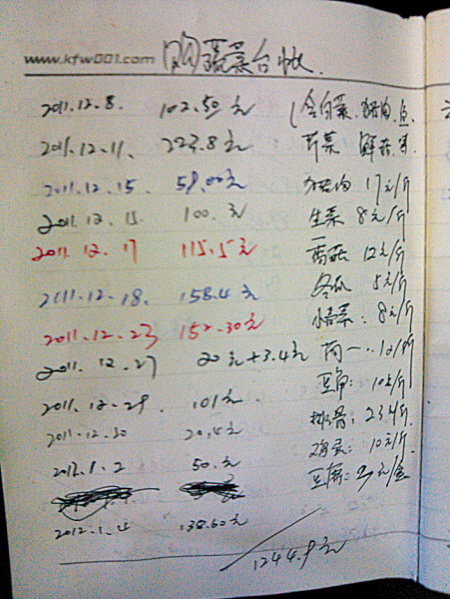 www.kfw001.com 购蔬菜台帐
2011.12.8. 102.50元 (含白菜、猪肉、鱼
2011.12.11. 223.8元 芹菜 鲜菇
2011.12.15 58.00元 猪肉 17元/斤
2011.12.15. 100.元 生菜 8元/斤
2011.12.17 115.5元 12元/斤
2011.12.18. 158.4元 冬瓜 5元/斤
2011.12.23 152.30元 8元/斤
2011.12.27 20元+3.4元
2011.12.29. 101元 豆角: 10元/斤
2011.12.30 20.4元 排骨: 23元/斤
2012.1.2 50.元 鸡蛋: 10元/斤
豆腐:
2012.1.4 138.60元
1244.9元